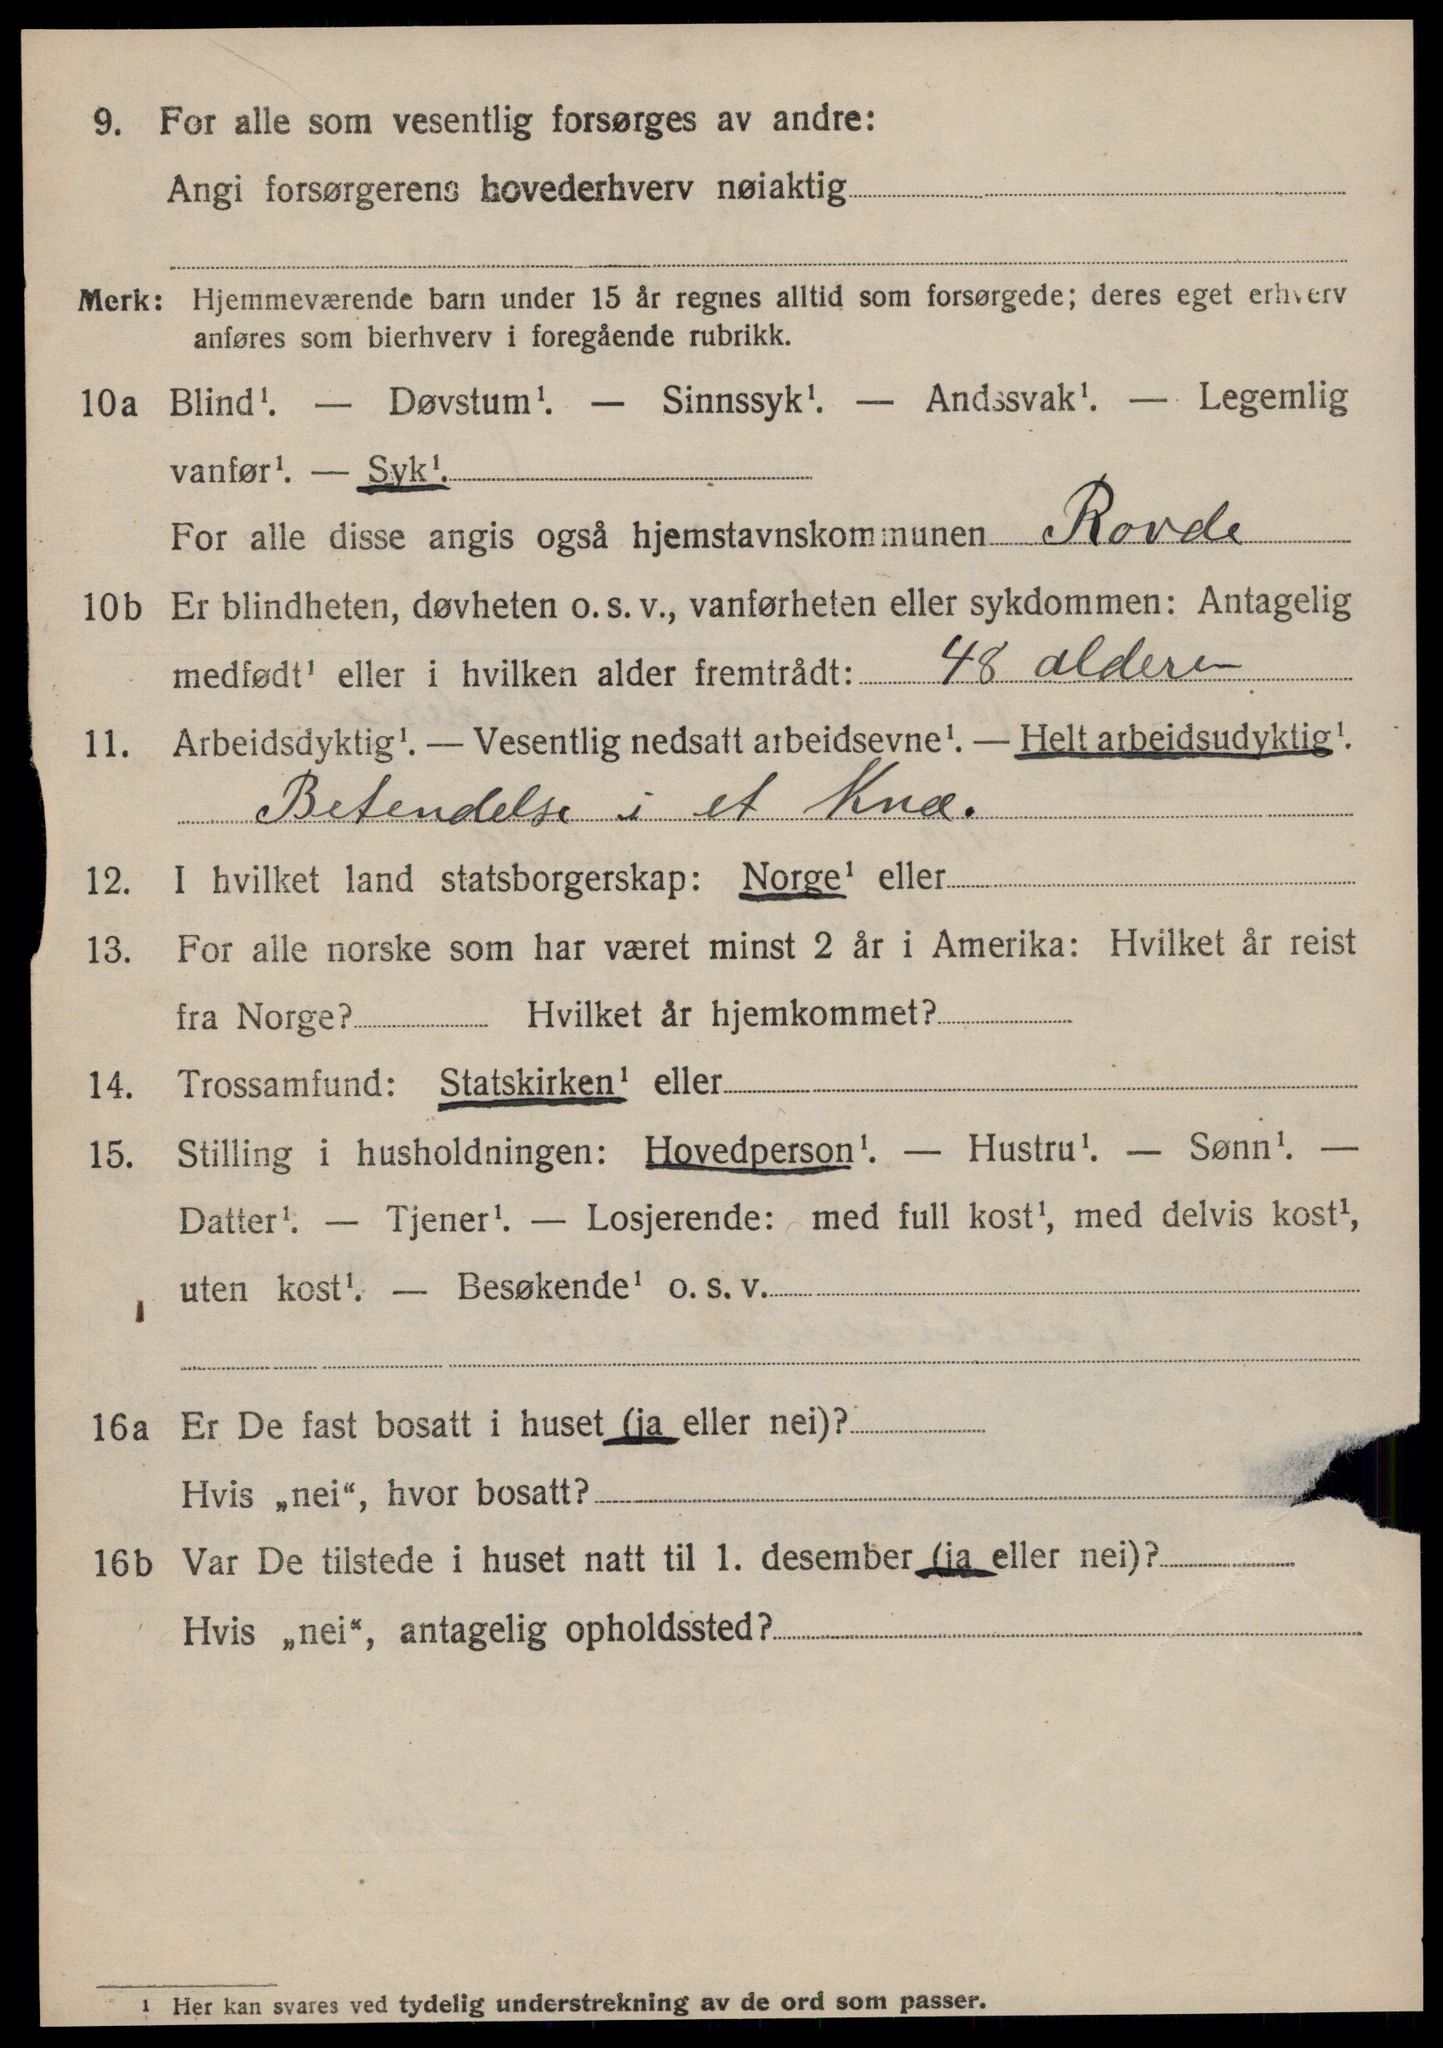 9. For alle som vesentlig forsørges av andre:
Angi forsørgerens hovederhverv nøiaktig
Merk: Hjemmeværende barn under 15 år regnes alltid som forsørgede; deres eget erhverv
anføres som bierhverv i foregående rubrikk.
10a Blind¹. — Døvstum¹. — Sinnssyk¹. — Andssvak¹. — Legemlig
vanfør¹. — Syk¹.
For alle disse angis også hjemstavnskommunen Rovde
10b Er blindheten, døvheten o. s. v., vanførheten eller sykdommen: Antagelig
medfødt¹ eller i hvilken alder fremtrådt: 48 alderen
11. Arbeidsdyktig¹. — Vesentlig nedsatt arbeidsevne¹. — Helt arbeidsudyktig¹.
Betendelse i et Knæ.
12. I hvilket land statsborgerskap: Norge¹ eller
13. For alle norske som har været minst 2 år i Amerika: Hvilket år reist
fra Norge? Hvilket år hjemkommet?
14. Trossamfund: Statskirken¹ eller
15. Stilling i husholdningen: Hovedperson¹. — Hustru¹. — Sønn¹. —
Datter¹. — Tjener¹. — Losjerende: med full kost¹, med delvis kost¹,
uten kost¹. — Besøkende¹ o. s. v.
16a Er De fast bosatt i huset (ja eller nei)?
Hvis „nei“, hvor bosatt?
16b Var De tilstede i huset natt til 1. desember (ja eller nei)?
Hvis „nei“, antagelig opholdssted?
¹ Her kan svares ved tydelig understrekning av de ord som passer.